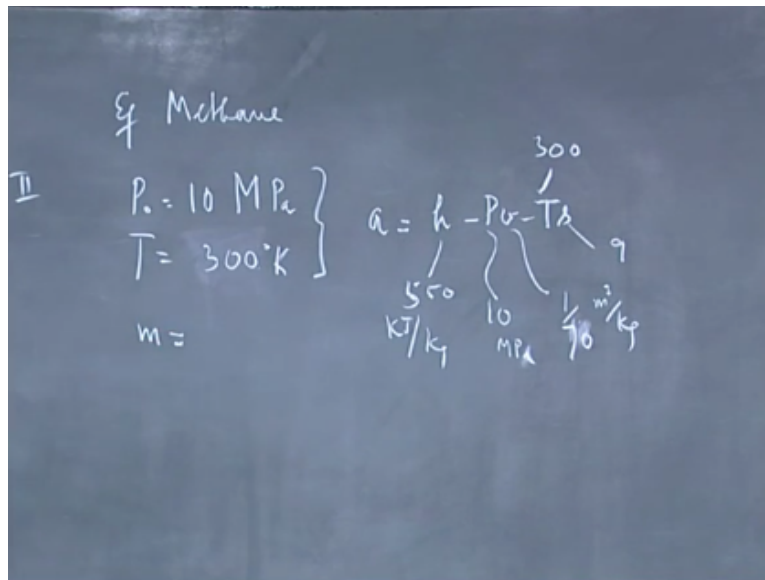 Eg Methane
II
P₀ = 10 MPa
T = 300°K
m =
300
a = h - Pv - Ts
550 KJ/kg
10 MPa
1/70 m³/kg
9